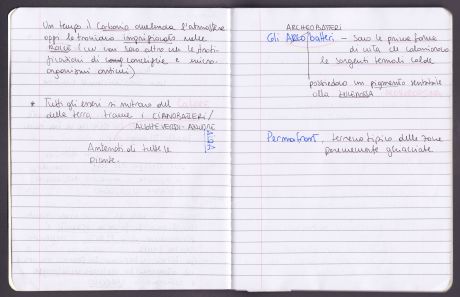 Un tempo il Carbonio avvolgeva l'atmosfera
oggi lo troviamo imprigionato nelle
ROCCE (che non sono altro che le stratificazioni
di conchiglie e micro-
organismi antichi)
* Tutti gli esseri si nutrono del CALORE
della terra tranne i CIANOBATTERI/
ALGHE VERDI-AZZURRE
Antenati di tutte le
piante.
ARCHEOBATTERI
Gli ARCObatteri - Sono le prime forme
di vita che colonizzarono
le sorgenti termali calde
possiedono un pigmento sensibile
alla
Permafrost, terreno tipico delle zone
perennemente ghiacciate